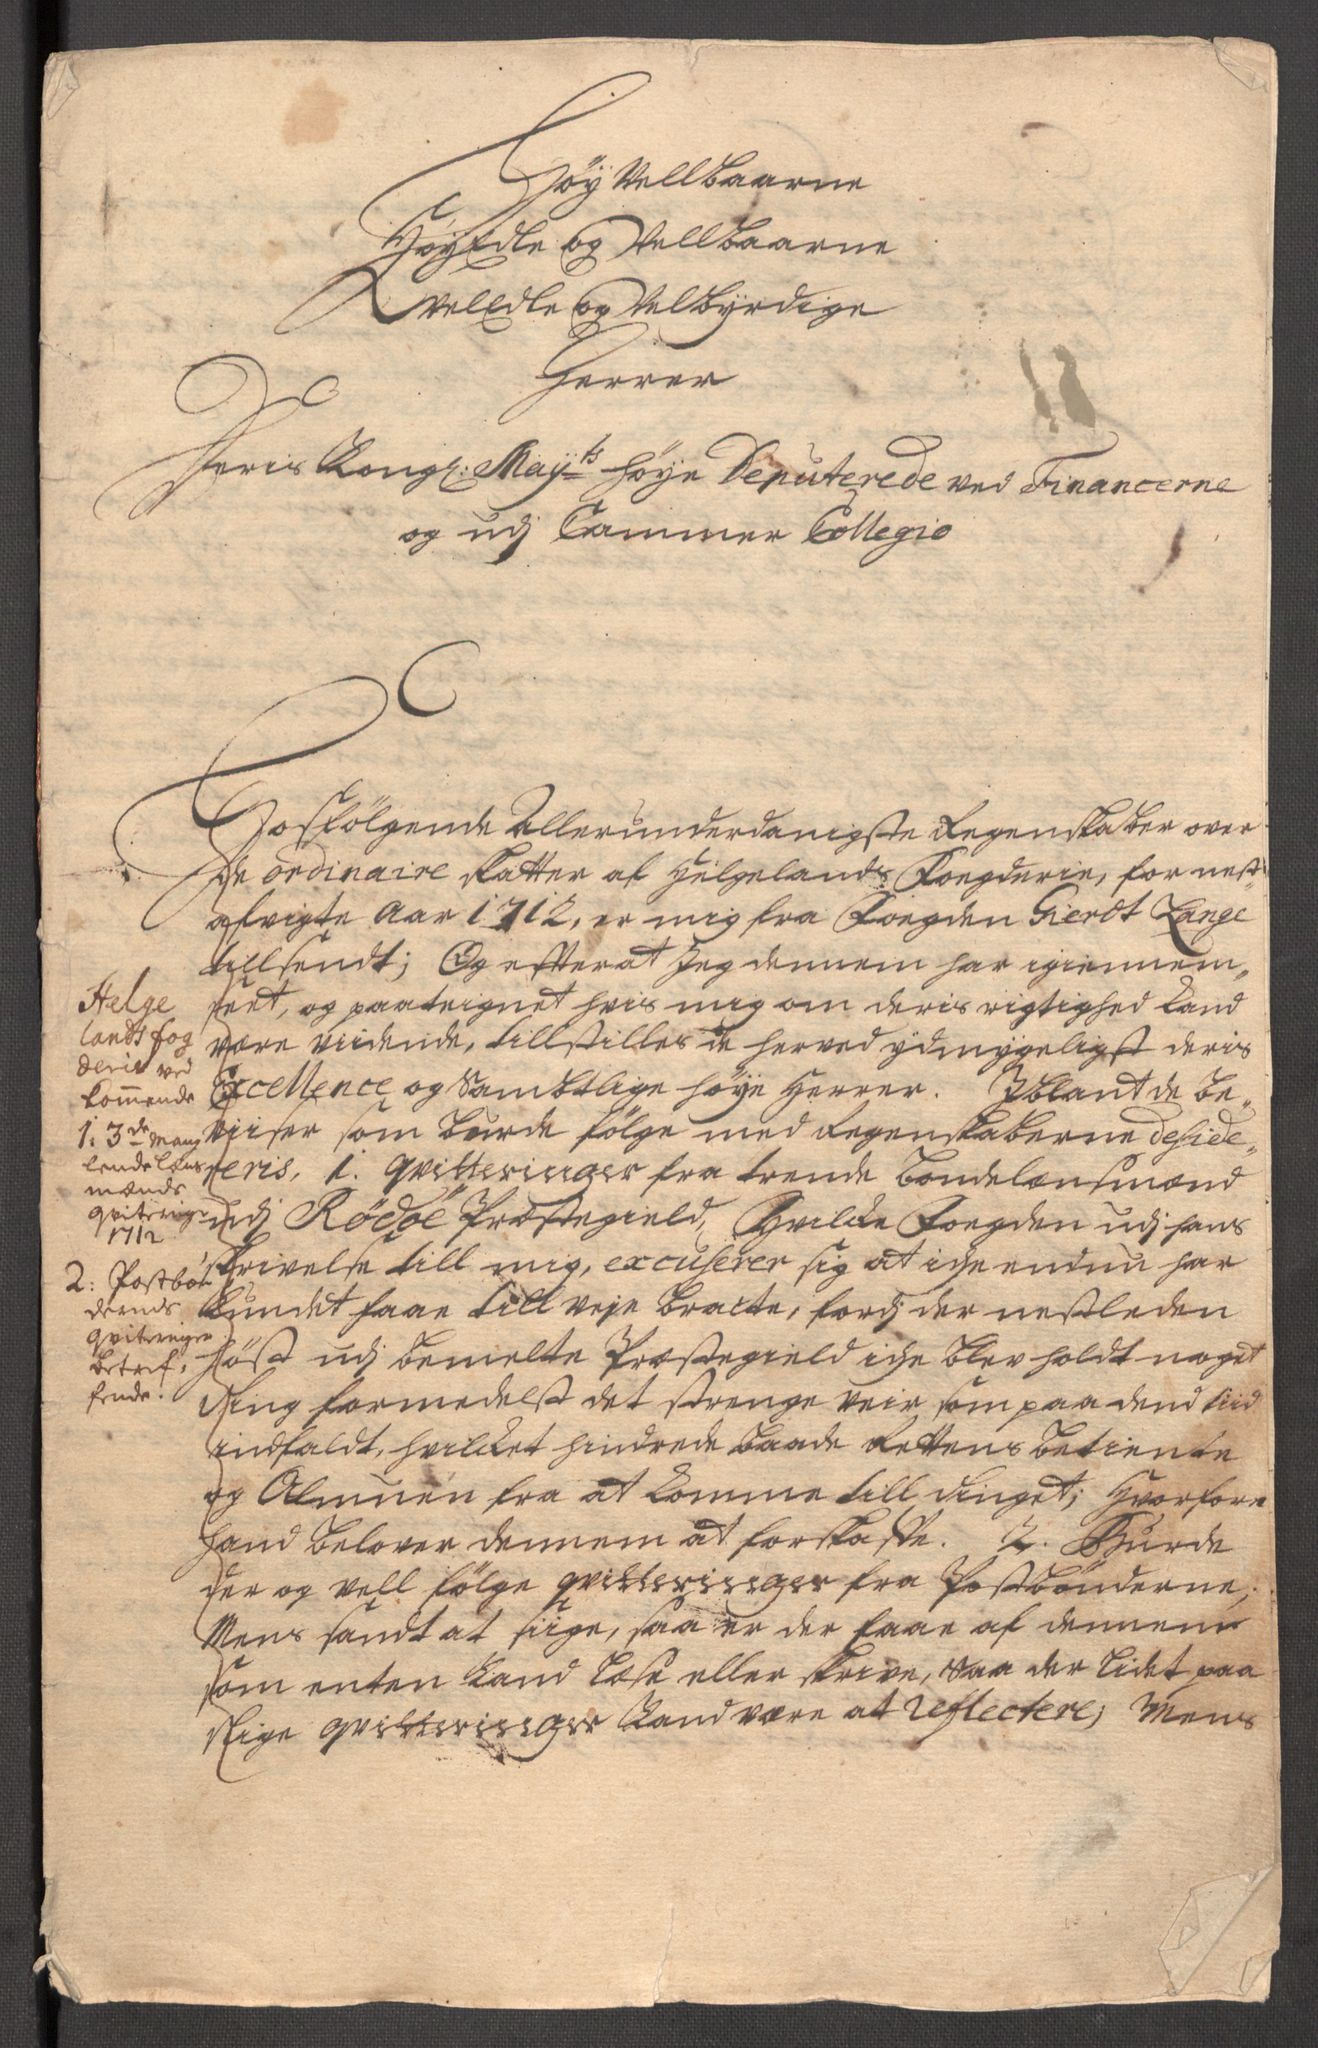 Høy Vellbaarne
Høyedle og Vellbaarne
Velædle og Velbyrdige
Herrer
Deris Kongl: Mayts høye Deputerede ved Financerne
og udj Cammer Collegio
Hosfølgende Allerunderdanigste Regenskaber over
de ordinaire skatter af Helgelands Foegderie, for nest
afvigte Aar 1712, er mig fra Foegden Gierdt Lange
tillsendt; Og efterat Jeg dennem har igiennem-
seet, og paateignet hvis mig om deris rigtighed kand
være vidende, tillstilles de herved ydmygeligst deris
Excellence og Sambtlige høye Herrer. Iblant de be-
viiser som burde følge med Regenskaberne deside-
reris, 1. qvitteringer fra trende bondelensmænd
udj Rødøe Præstegield, Hvilcke Foegden udj hans
skrivelse till mig, excuserer sig at iche endnu har
kundet faae till veje bracte, fordj der nestleden
høst udj bemelte Præstegield iche blev holdt noget
ting formedelst det strenge veir som paa dend tiid
indfaldt, hvilcket hindrede baade Rettens betiente
og Almuen fra at komme till tinget; Hvorfore
hand belover dennem at forskaffe. 2. Burde
der og vell følge qvitteringer fra Postbønderne,
Mens sandt at siige, saa er der faae af dennem
som enten kand læse eller skrive, saa der lidet paa
slige qvitteringer kand være at reflectere; Mens
Helge
lands fog
derie ved
kommende
1: 3de Mang
lende Lens
mænds
qviteringer
1712
2: Postbøn
dernds
qviteringer
betref-
fende.